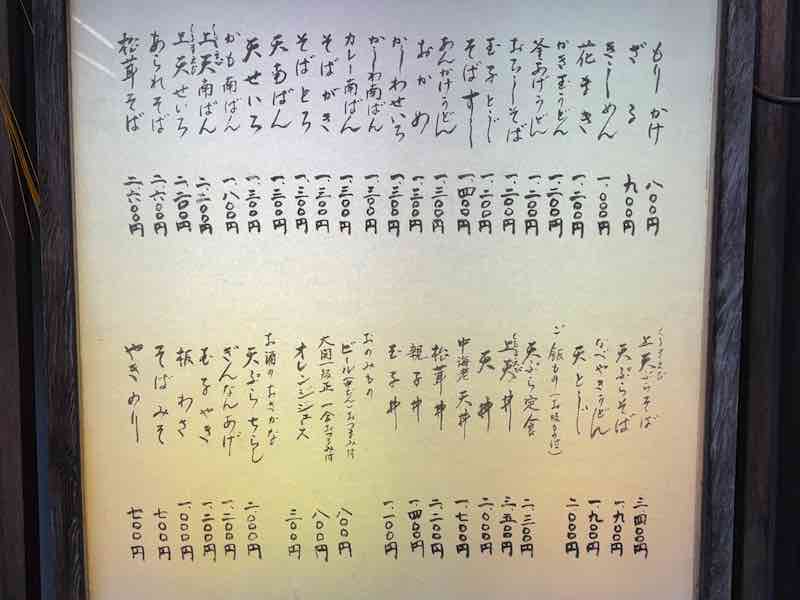 もり かけ 八〇〇円
ざる 九〇〇円
きしめん 一、〇〇〇円
花まき 一、二〇〇円
かき玉うどん 一、二〇〇円
釜あげうどん 一、二〇〇円
おろしそば 一、二〇〇円
玉子とじ 一、二〇〇円
そばずし 一、四〇〇円
あんかけうどん 一、三〇〇円
おかめ 一、三〇〇円
かしわせいろ 一、三〇〇円
かしわ南ばん 一、三〇〇円
カレー南ばん 一、三〇〇円
そばがき 一、三〇〇円
そばとろ 一、三〇〇円
天南ばん 一、三〇〇円
天せいろ 一、三〇〇円
かも南ばん 一、八〇〇円
上天南ばん 二、二〇〇円
上天せいろ 二、二〇〇円
あられそば 二、六〇〇円
松茸そば 二、六〇〇円
くるまえび
上天ぷらそば 二、四〇〇円
天ぷらそば 一、九〇〇円
なべやきうどん 一、九〇〇円
天とじ 二、〇〇〇円
ご飯もの(お吸もの付)
天ぷら定食 二、三〇〇円
くるまえび
上天丼 三、五〇〇円
天丼 二、〇〇〇円
中海老天丼 一、七〇〇円
松茸丼 二、二〇〇円
親子丼 一、四〇〇円
玉子丼 一、一〇〇円
おのみもの
ビール(中どんおつまみ付 八〇〇円
大関一級正一合おつまみ付 八〇〇円
オレンジジュース 三〇〇円
お酒のおさかな
天ぷらちらし 二、〇〇〇円
ぎんなんあげ 一、二〇〇円
玉子やき 一、二〇〇円
板わさ 一、〇〇〇円
そばみそ 七〇〇円
やきのり 七〇〇円